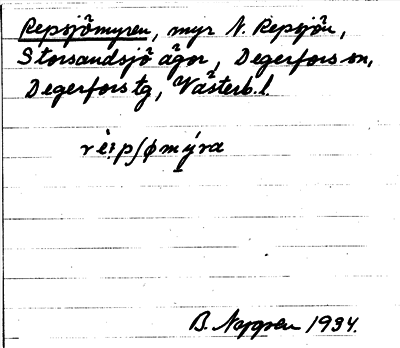 Repsjömyren, myr N. Repsjön,
Storsandsjö ägor, Degerfors sn,
Degerfors tg, Västerb. l.
rè:pʃømýra
B. Nygren 1934.